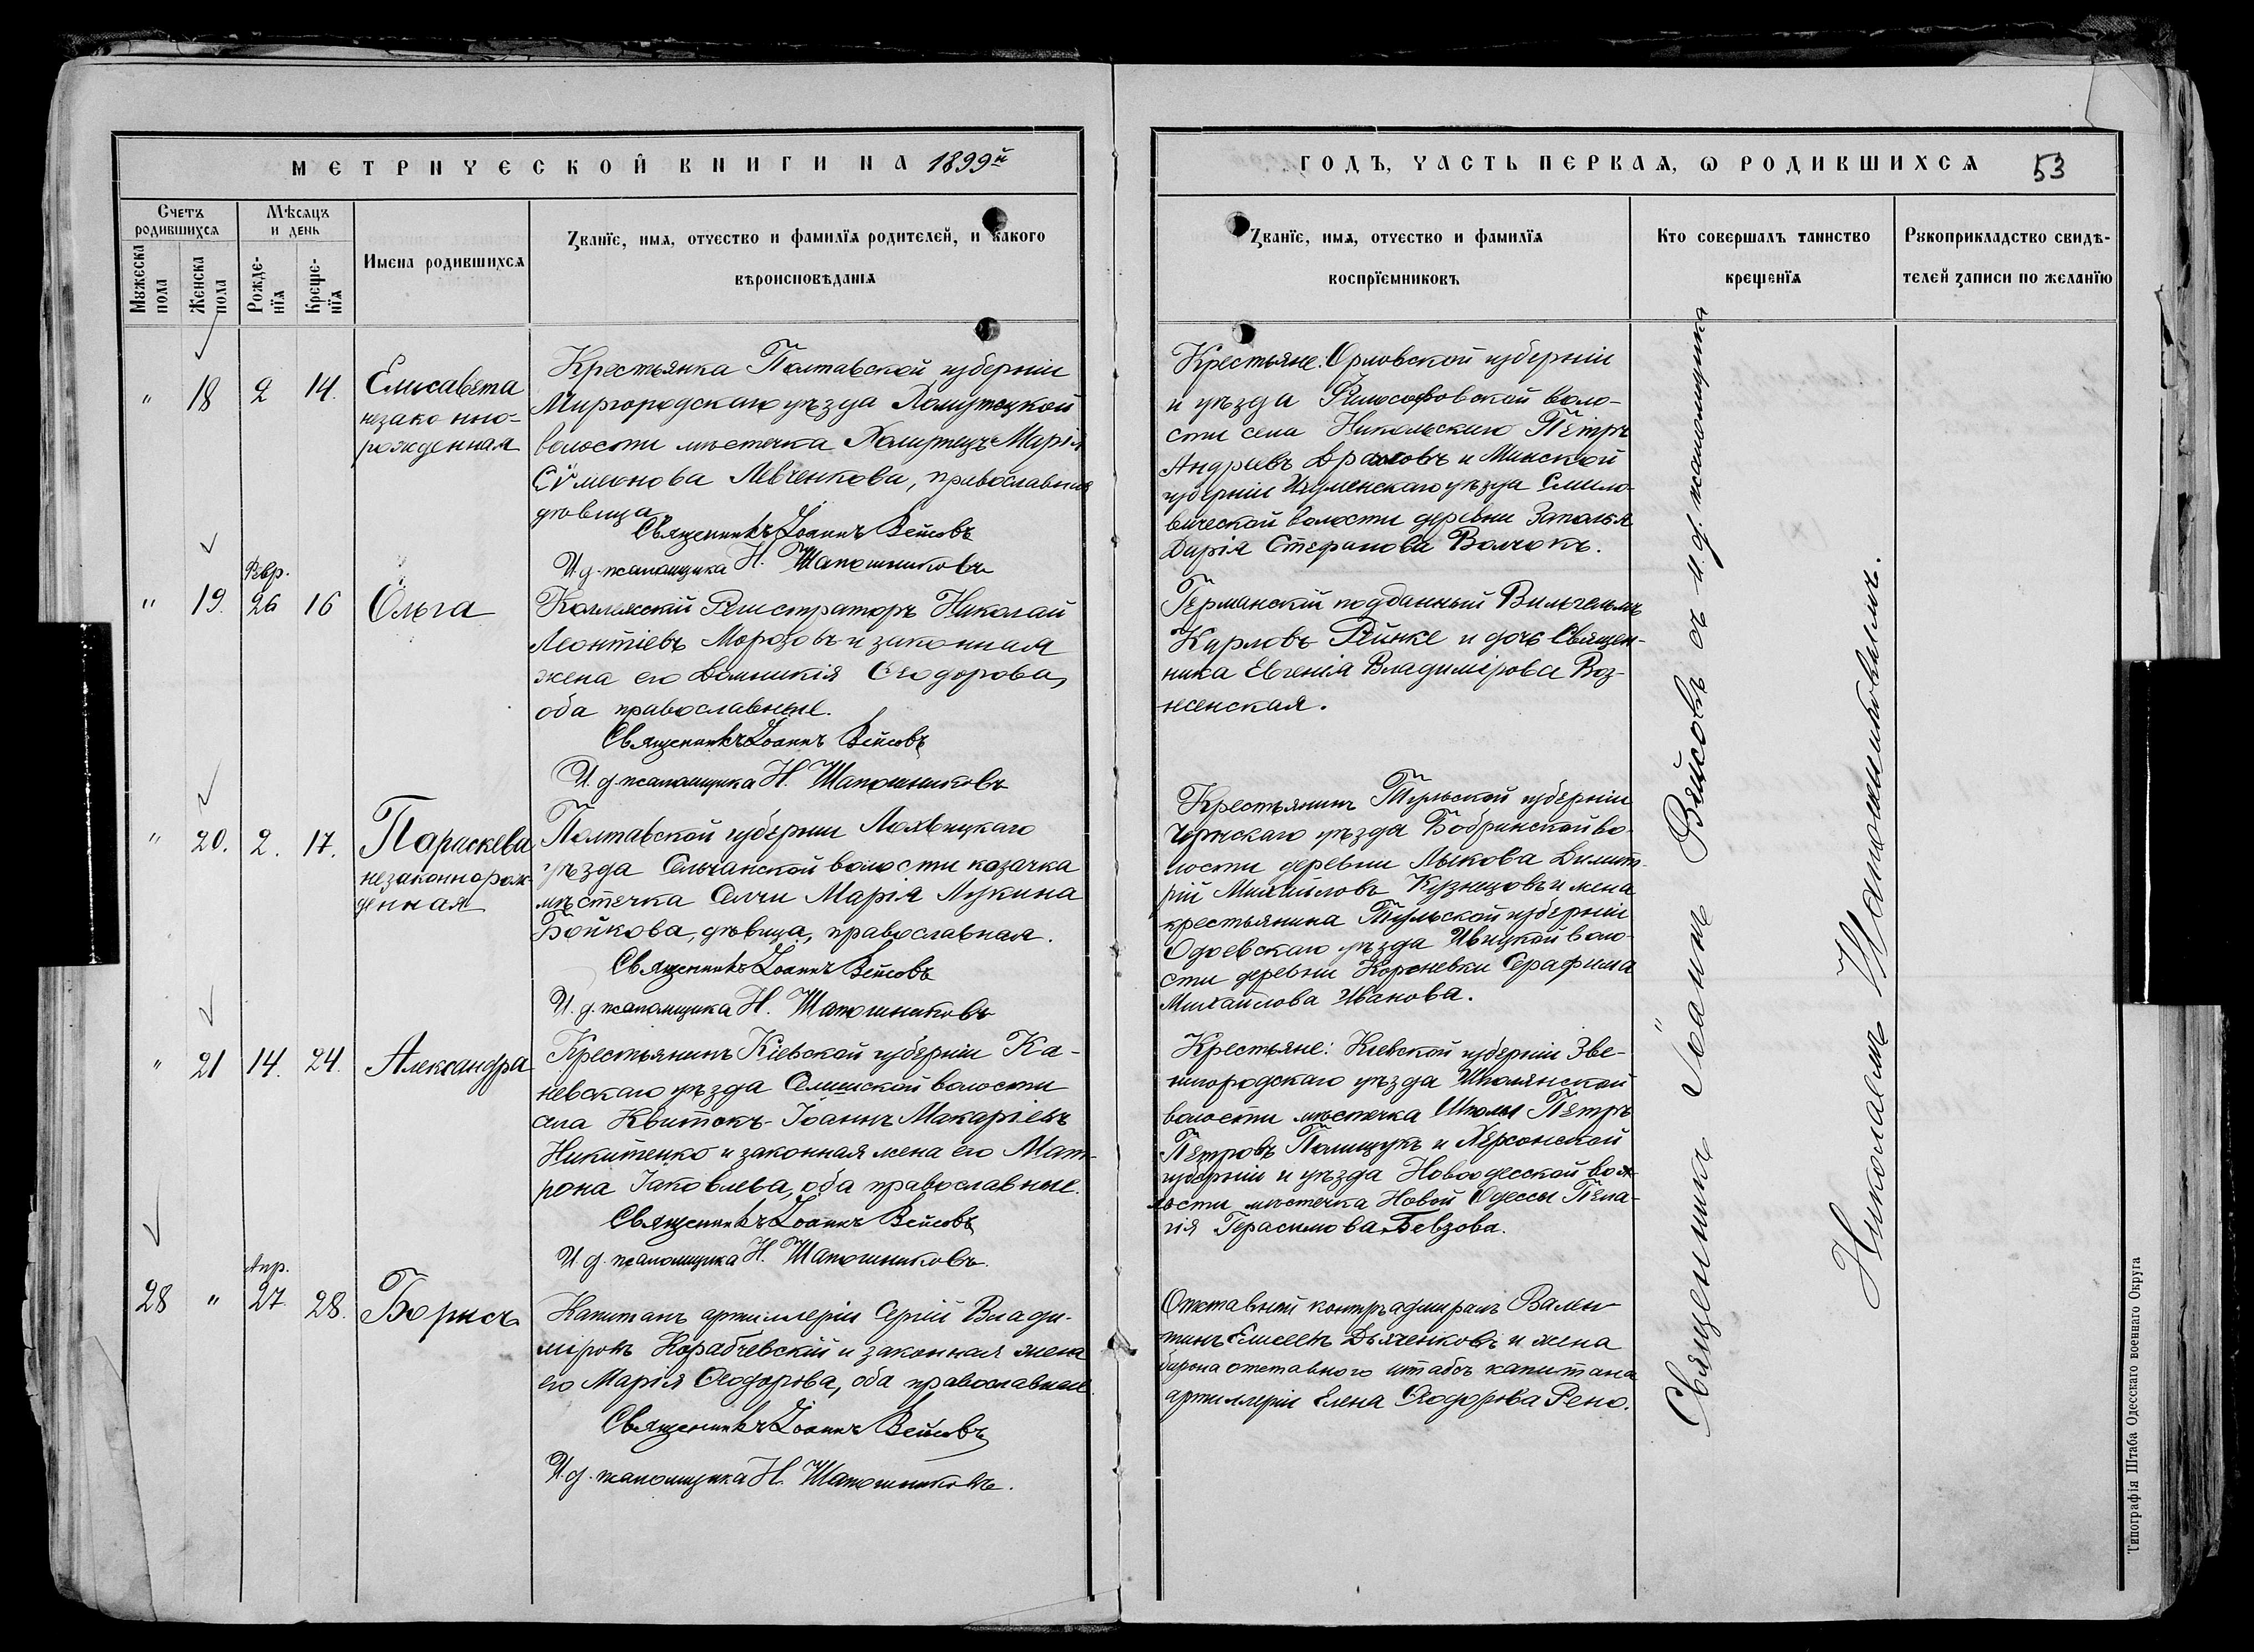 МЕТРИЧЕСКОЙ КНИГИ НА 1899й
Счетъ родившихся
Мѣсяцъ и день
Мужеска пола
Женска пола
Рожденія
Крещенія
Имена родившихся
Званіе, имя, отчество и фамилія родителей, и какого
вѣроисповѣданія
" 18 2 14.
Елисавета
незаконно-
рожденная
Крестьянка Полтавской губерніи
Миргородскаго уѣзда
волости мѣстечка Марія
Сѵмеонова Левченкова, православная
дѣвица
Священникъ Іоаннъ Вейсовъ
И.д. псаломщика Н. Шапошниковъ
" 19. Февр. 26 16
Ольга
Коллежскій Регистраторъ Николай
Леонтіевъ Морозовъ и законная
жена его Домникія Ѳеодорова,
оба православные.
Священникъ Іоаннъ Вейсовъ
И.д. псаломщика Н. Шапошниковъ
" 20. 2. 17.
Параскева
незаконнорож-
денная
Полтавской губерніи Лохвицкаго
уѣзда Сенчанской волости казачка
мѣстечка Сенчи Марія Лукина
Бойкова, дѣвица, православная.
Священникъ Іоаннъ Вейсовъ
И.д. псаломщика Н. Шапошниковъ
" 21 14. 24.
Александра
Крестьянинъ Кіевской губерніи Ка-
невскаго уѣзда волости
села Квитокъ Іоаннъ Макаріевъ
Никитенко и законная жена его Мат-
рона Іаковлева, оба православные.
Священникъ Іоаннъ Вейсовъ
И.д. псаломщика Н. Шапошниковъ.
28 " Апр. 27. 28.
Борисъ
Капитанъ артиллеріи Сергій Влади-
міровъ Корабчевскій и законная жена
его Марія Ѳеодорова, оба православные.
Священникъ Іоаннъ Вейсовъ
И.д. псаломщика Н. Шапошниковъ.
ГОДЪ, ЧАСТЬ ПЕРВАЯ, Ѡ РОДИВШИХСЯ 53
Званіе, имя, отчество и фамилія
воспріемниковъ
Кто совершалъ таинство
крещенія
Рукоприкладство свидѣ-
телей записи по желанію
Крестьяне: Орловской губерніи
и уѣзда Философовской воло-
сти села Никольскаго Петръ
Андреевъ и Минской
губерніи Игуменскаго уѣзда Смило-
вичской волости деревни Заполья
Дарія Стефанова Волчокъ.
Германскій подданный Вильгельмъ
Карловъ Рейнке и дочь Священ-
ника Евгенія Владимірова Воз-
несенская.
Крестьянинъ Тульской губерніи
Чернскаго уѣзда Бобринской во-
лости деревни Лыкова Димит-
рій Михайловъ Кузнецовъ и жена
крестьянина Тульской губерніи
Одоевскаго уѣзда Ивицкой воло-
сти деревни Короневки Серафима
Михайлова Иванова.
Крестьяне: Кіевской губерніи Зве-
нигородскаго уѣзда Шполянской
волости мѣстечка Шполы Петръ
Петровъ Полищукъ и Херсонской
губерніи и уѣзда Новоодесской во-
лости мѣстечка Новой Одессы Пела-
гія Герасимова Бевзова.
Отставной контръ адмиралъ Вален-
тинъ Елисеевъ Дьяченковъ и жена
барона отставного штабсъ капитана
артиллеріи Елена Ѳеодорова Рено.
Священникъ Іоаннъ Вейсовъ съ и.д. псаломщика
Николаемъ Шапошниковымъ.
Типографія Штаба Одесскаго военнаго Округа